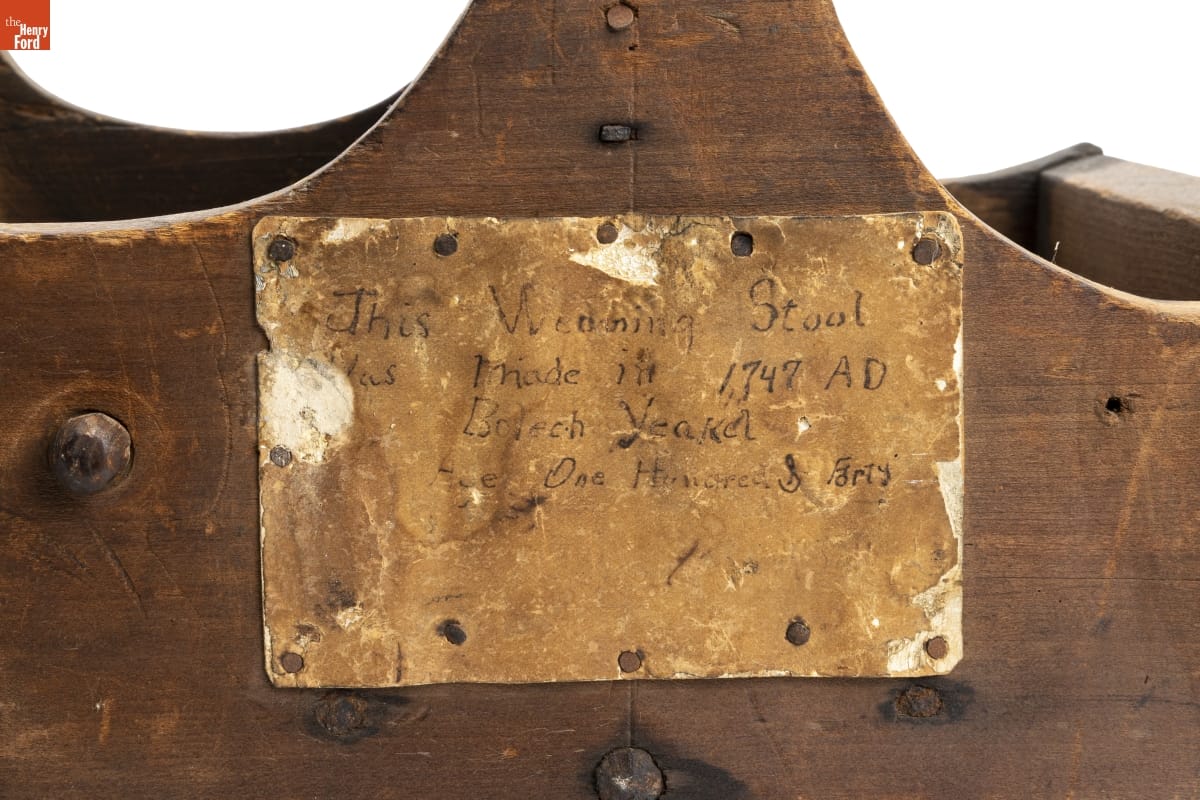 the
Henry
Ford
This Weaning Stool
Was Made in 1,747 AD
Yeakel
Age One Hundred & Forty